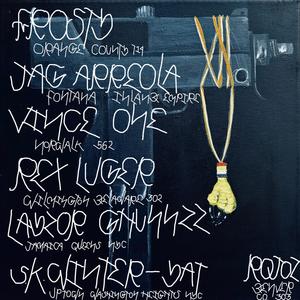 FROSTY
ORANGE COUNTY 714
JAG ARREOLA
FONTANA INLAND EMPIRE
VINCE ONE
NORWALK 562
REX LUGER
WILMINGTON DELAWARE 302
LABOR GHUNNZZ
JAMAICA QUEENS NYC
SKWINTER-DAT
UPTOWN WASHINGTON HEIGHTS NYC
ROJOZ
DENVER
CO 303